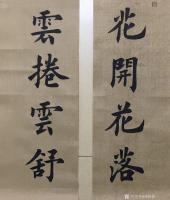 花開花落
雲捲雲舒